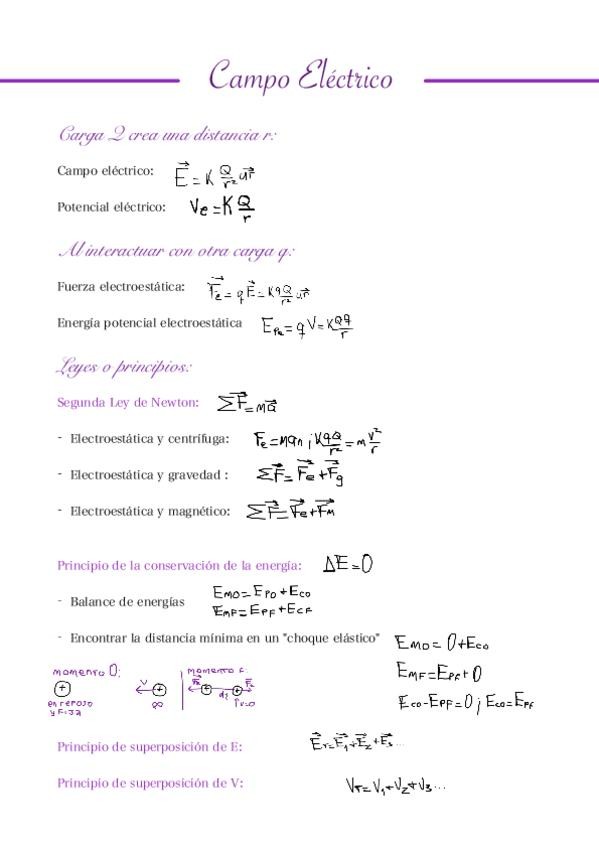 Campo Eléctrico
Carga Q crea una distancia r:
Campo eléctrico: E⃗ = K Q/r² u⃗r
Potencial eléctrico: Ve = K Q/r
Al interactuar con otra carga q:
Fuerza electroestática: F⃗e = q E⃗ = K qQ/r² u⃗r
Energía potencial electroestática Epe = q V = K Qq/r
Leyes o principios:
Segunda Ley de Newton: ΣF⃗ = ma⃗
- Electroestática y centrífuga: Fe = man ; K qQ/r² = m v²/r
- Electroestática y gravedad : ΣF⃗ = F⃗e + F⃗g
- Electroestática y magnético: ΣF⃗ = F⃗e + F⃗M
Principio de la conservación de la energía: ΔE = 0
- Balance de energías
EM0 = EP0 + EC0
EMF = EPF + ECF
- Encontrar la distancia mínima en un "choque elástico"
EM0 = 0 + EC0
EMF = EPF + 0
EC0 - EPF = 0 ; EC0 = EPF
momento 0:
+ v +
en reposo ∞
y fija
momento F:
Principio de superposición de E: E⃗T = E⃗1 + E⃗2 + E⃗3 ...
Principio de superposición de V: VT = V1 + V2 + V3 ...